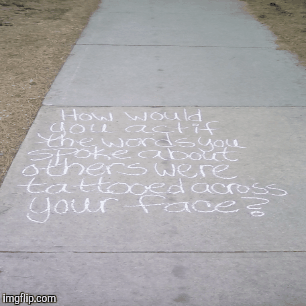 How would
you act if
the words you
spoke about
others were
tattooed across
your face?
imgflip.com